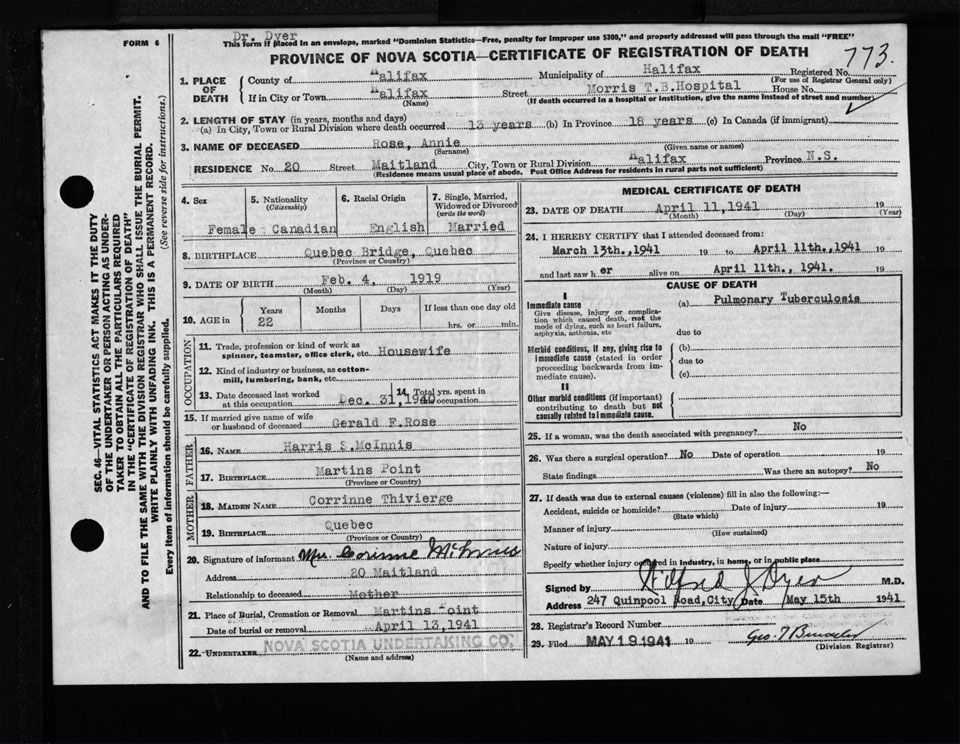 Dr. Dyer
FORM 6
This form if placed in an envelope, marked "Dominion Statistics—Free, penalty for improper use $300," and properly addressed will pass through the mail "FREE"
PROVINCE OF NOVA SCOTIA—CERTIFICATE OF REGISTRATION OF DEATH
773.
1. PLACE OF DEATH
County of Halifax Municipality of Halifax Registered No.
(For use of Registrar General only)
If in City or Town Halifax Street Morris T.B.Hospital House No.
(Name) (If death occurred in a hospital or institution, give the name instead of street and number)
2. LENGTH OF STAY (in years, months and days)
(a) In City, Town or Rural Division where death occurred 13 years (b) In Province 18 years (c) In Canada (if immigrant)
3. NAME OF DECEASED Rose, Annie
(Surname) (Given name or names)
RESIDENCE No. 20 Street Maitland City, Town or Rural Division Halifax Province N.S.
(Residence means usual place of abode. Post Office Address for residents in rural parts not sufficient)
4. Sex
Female
5. Nationality
(Citizenship)
Canadian
6. Racial Origin
English
7. Single, Married, Widowed or Divorced
(write the word)
Married
8. BIRTHPLACE Quebec Bridge, Quebec
(Province or Country)
9. DATE OF BIRTH Feb. 4, 1919
(Month) (Day) (Year)
10. AGE in Years Months Days If less than one day old
22 hrs. or min.
OCCUPATION
11. Trade, profession or kind of work as
spinner, teamster, office clerk, etc. Housewife
12. Kind of industry or business, as cotton-
mill, lumbering, bank, etc.
13. Date deceased last worked at this occupation Dec. 31, 1940 14. Total yrs. spent in occupation
15. If married give name of wife
or husband of deceased Gerald F.Rose
FATHER
16. NAME Harris S.McInnis
17. BIRTHPLACE Martins Point
(Province or Country)
MOTHER
18. MAIDEN NAME Corrinne Thivierge
19. BIRTHPLACE Quebec
(Province or Country)
20. Signature of informant Mrs. Corinne McInnis
Address 20 Maitland
Relationship to deceased Mother
21. Place of Burial, Cremation or Removal Martins Point
Date of burial or removal April 13, 1941
22. UNDERTAKER NOVA SCOTIA UNDERTAKING CO.
(Name and address)
MEDICAL CERTIFICATE OF DEATH
23. DATE OF DEATH April 11, 1941 19
(Month) (Day) (Year)
24. I HEREBY CERTIFY that I attended deceased from:
March 13th., 1941 19 to April 11th., 1941 19
and last saw her alive on April 11th., 1941. 19
CAUSE OF DEATH
I
Immediate cause
Give disease, injury or complication which caused death, not the mode of dying, such as heart failure, asphyxia, asthenia, etc
(a) Pulmonary Tuberculosis
due to
Morbid conditions, if any, giving rise to immediate cause (stated in order proceeding backwards from immediate cause).
(b)
due to
(c)
II
Other morbid conditions (if important) contributing to death but not causally related to immediate cause.
25. If a woman, was the death associated with pregnancy? No
26. Was there a surgical operation? No Date of operation 19
State findings Was there an autopsy? No
27. If death was due to external causes (violence) fill in also the following:—
Accident, suicide or homicide? Date of injury 19
(State which)
Manner of injury
(How sustained)
Nature of injury
Specify whether injury occurred in Industry, in home, or in public place
Signed by Wilfred J Dyer M.D.
Address 247 Quinpool Road, City Date May 15th 1941
28. Registrar's Record Number
29. Filed MAY 19 1941 19
(Division Registrar)
SEC. 46—VITAL STATISTICS ACT MAKES IT THE DUTY
OF THE UNDERTAKER OR PERSON ACTING AS UNDER-
TAKER TO OBTAIN ALL THE PARTICULARS REQUIRED
IN THE "CERTIFICATE OF REGISTRATION OF DEATH"
AND TO FILE THE SAME WITH THE DIVISION REGISTRAR WHO SHALL ISSUE THE BURIAL PERMIT.
WRITE PLAINLY WITH UNFADING INK. THIS IS A PERMANENT RECORD.
Every item of information should be carefully supplied. (See reverse side for instructions.)